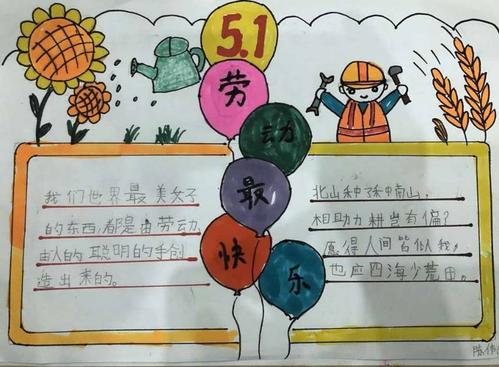 5.1
劳
动
最
快
乐
我们世界最美好
的东西,都是由劳动,
由人的聪明的手创
造出来的。
北山种了种南山,
相助力耕岂有偏?
愿得人间皆似我,
也应四海少荒田。
陈